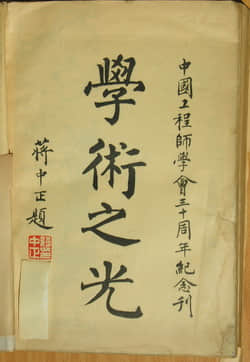 中國工程師學會三十周年紀念刊
學術之光
蔣中正題
蔣中正印